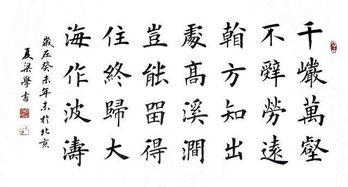 千巖萬壑
不辭勞遠
翰方知出
處高溪澗
豈能留得
住終歸大
海作波濤
歲在癸未年末於北京
夏梁學書